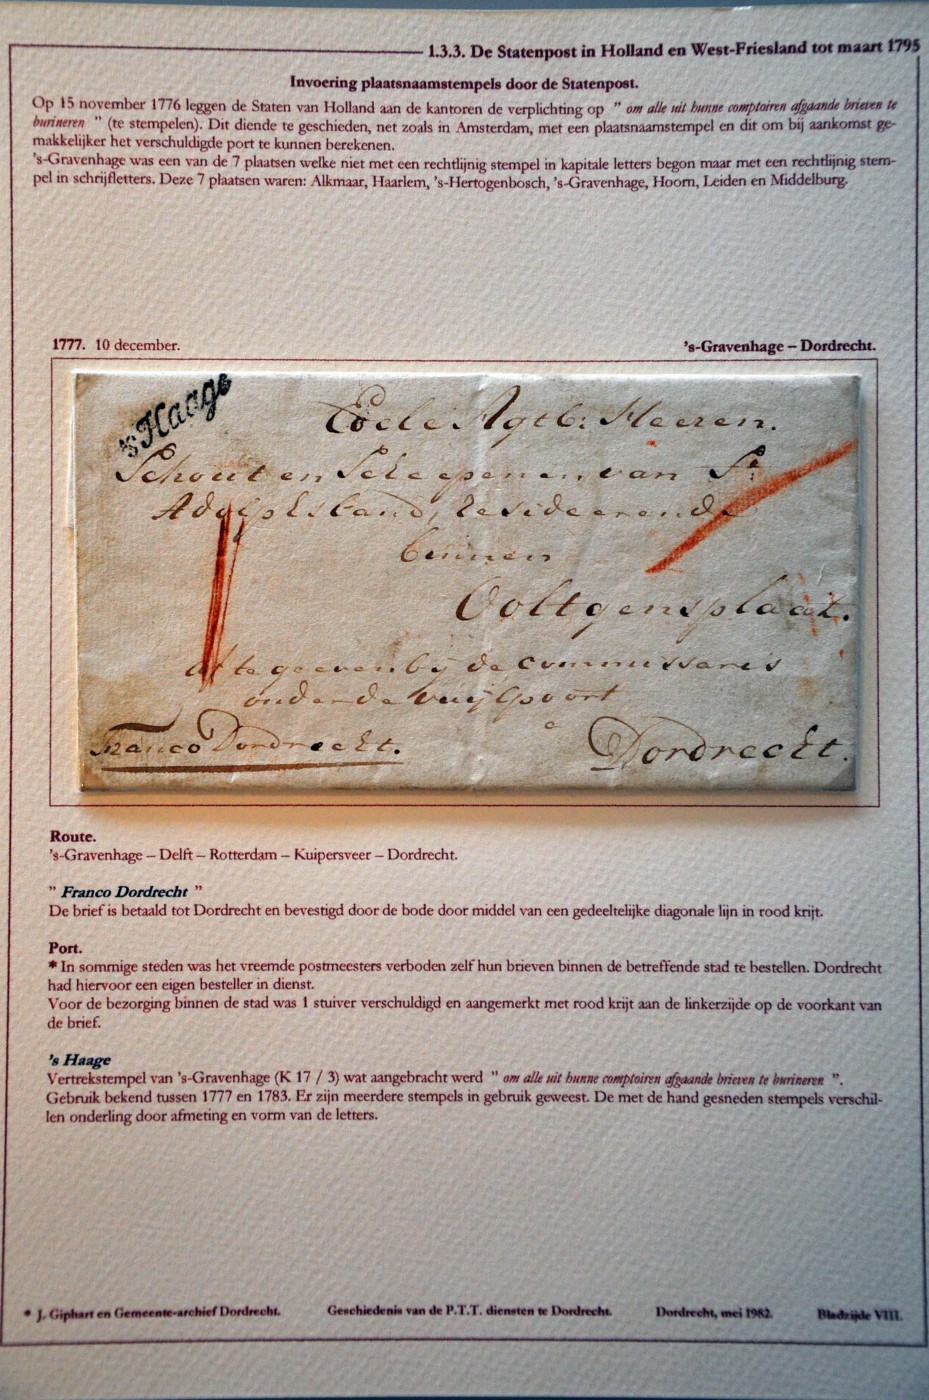 1.3.3. De Statenpost in Holland en West-Friesland tot maart 1795
Invoering plaatsnaamstempels door de Statenpost.
Op 15 november 1776 leggen de Staten van Holland aan de kantoren de verplichting op " om alle uit hunne comptoiren afgaande brieven te
burineren " (te stempelen). Dit diende te geschieden, net zoals in Amsterdam, met een plaatsnaamstempel en dit om bij aankomst ge-
makkelijker het verschuldigde port te kunnen berekenen.
's-Gravenhage was een van de 7 plaatsen welke niet met een rechtlijnig stempel in kapitale letters begon maar met een rechtlijnig stem-
pel in schrijfletters. Deze 7 plaatsen waren: Alkmaar, Haarlem, 's-Hertogenbosch, 's-Gravenhage, Hoorn, Leiden en Middelburg.
1777. 10 december.
's-Gravenhage – Dordrecht.
's Haage
Edele Agtb: Heeren.
Schout en Scheepenen van St:
Adolphsland, resideerende
binnen
Ooltgensplaat.
af te geeven bij de commissaris
onder de vuijlpoort
Franco Dordrecht.
Dordrecht.
Route.
's-Gravenhage – Delft – Rotterdam – Kuipersveer – Dordrecht.
" Franco Dordrecht "
De brief is betaald tot Dordrecht en bevestigd door de bode door middel van een gedeeltelijke diagonale lijn in rood krijt.
Port.
* In sommige steden was het vreemde postmeesters verboden zelf hun brieven binnen de betreffende stad te bestellen. Dordrecht
had hiervoor een eigen besteller in dienst.
Voor de bezorging binnen de stad was 1 stuiver verschuldigd en aangemerkt met rood krijt aan de linkerzijde op de voorkant van
de brief.
's Haage
Vertrekstempel van 's-Gravenhage (K 17 / 3) wat aangebracht werd " om alle uit hunne comptoiren afgaande brieven te burineren ".
Gebruik bekend tussen 1777 en 1783. Er zijn meerdere stempels in gebruik geweest. De met de hand gesneden stempels verschil-
len onderling door afmeting en vorm van de letters.
* J. Giphart en Gemeente-archief Dordrecht. Geschiedenis van de P.T.T. diensten te Dordrecht. Dordrecht, mei 1982. Bladzijde VIII.